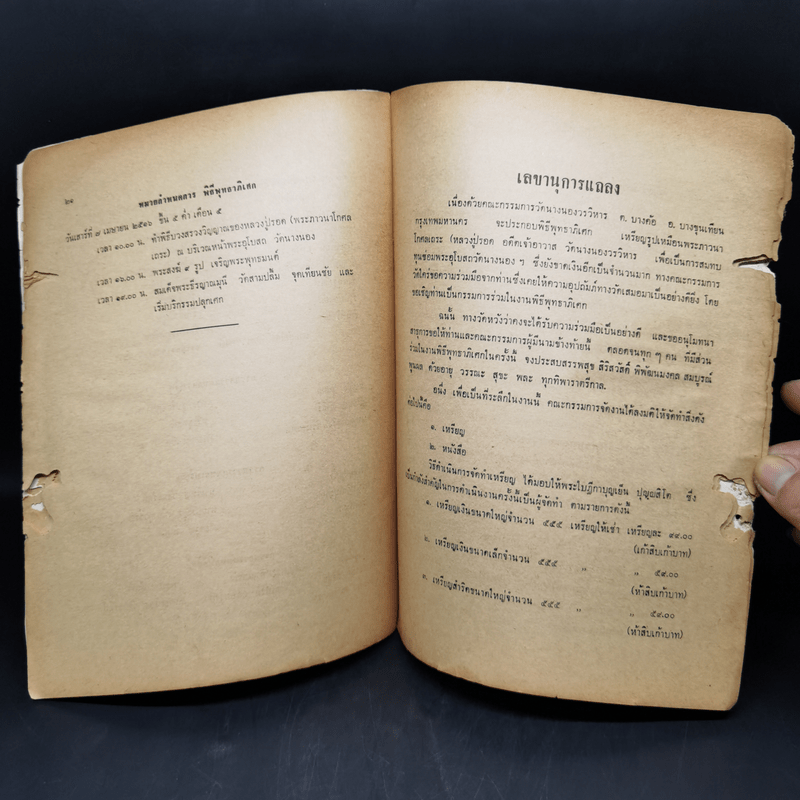 ๒๑
หมายกำหนดการ พิธีพุทธาภิเศก
วันเสาร์ที่ ๗ เมษายน ๒๕๑๖ ขึ้น ๕ ค่ำ เดือน ๕
เวลา ๑๐.๐๐ น. ทำพิธีบวงสรวงวิญญาณของหลวงปู่รอด (พระภาวนาโกศล
เถระ) ณ บริเวณหน้าพระอุโบสถ วัดนางนอง
เวลา ๑๖.๐๐ น. พระสงฆ์ ๙ รูป เจริญพระพุทธมนต์
เวลา ๑๙.๐๐ น. สมเด็จพระธีรญาณมุนี วัดสามปลื้ม จุดเทียนชัย และ
เริ่มบริกรรมปลุกเศก
เลขานุการแถลง
เนื่องด้วยคณะกรรมการวัดนางนองวรวิหาร ต. บางค้อ อ. บางขุนเทียน
กรุงเทพมหานคร จะประกอบพิธีพุทธาภิเศก เหรียญรูปเหมือนพระภาวนา
โกศลเถระ (หลวงปู่รอด อดีตเจ้าอาวาส วัดนางนองวรวิหาร เพื่อเป็นการสมทบ
ทุนซ่อมพระอุโบสถวัดนางนอง ฯ ซึ่งยังขาดเงินอีกเป็นจำนวนมาก ทางคณะกรรมการ
วัดใคร่ขอความร่วมมือจากท่านซึ่งเคยให้ความอุปถัมภ์ทางวัดเสมอมาเป็นอย่างดียิ่ง โดย
ขอเชิญท่านเป็นกรรมการร่วมในงานพิธีพุทธาภิเศก
ฉนั้น ทางวัดหวังว่าคงจะได้รับความร่วมมือเป็นอย่างดี และขออนุโมทนา
สาธุการขอให้ท่านและคณะกรรมการผู้มีนามข้างท้ายนี้ ตลอดจนทุก ๆ คน ที่มีส่วน
ร่วมในงานพิธีพุทธาภิเศกในครั้งนี้ จงประสบสรรพสุข สิริสวัสดิ์ พิพัฒนมงคล สมบูรณ์
พูนผล ด้วยอายุ วรรณะ สุขะ พละ ทุกทิพาราตรีกาล.
อนึ่ง เพื่อเป็นที่ระลึกในงานนี้ คณะกรรมการจัดงานได้ลงมติให้จัดทำสิ่งดัง
ต่อไปนี้คือ
๑. เหรียญ
๒. หนังสือ
วิธีดำเนินการจัดทำเหรียญ ได้มอบให้พระใบฎีกาบุญเย็น ปุญฺญสิโต ซึ่ง
เป็นกำลังสำคัญในการดำเนินงานครั้งนี้เป็นผู้จัดทำ ตามรายการดังนี้
๑. เหรียญเงินขนาดใหญ่จำนวน ๕๕๕ เหรียญให้เช่า เหรียญละ ๙๙.๐๐
(เก้าสิบเก้าบาท)
๒. เหรียญเงินขนาดเล็กจำนวน ๕๕๕ „ „ ๕๙.๐๐
(ห้าสิบเก้าบาท)
๓. เหรียญสำริดขนาดใหญ่จำนวน ๕๕๕ „ „ ๕๙.๐๐
(ห้าสิบเก้าบาท)